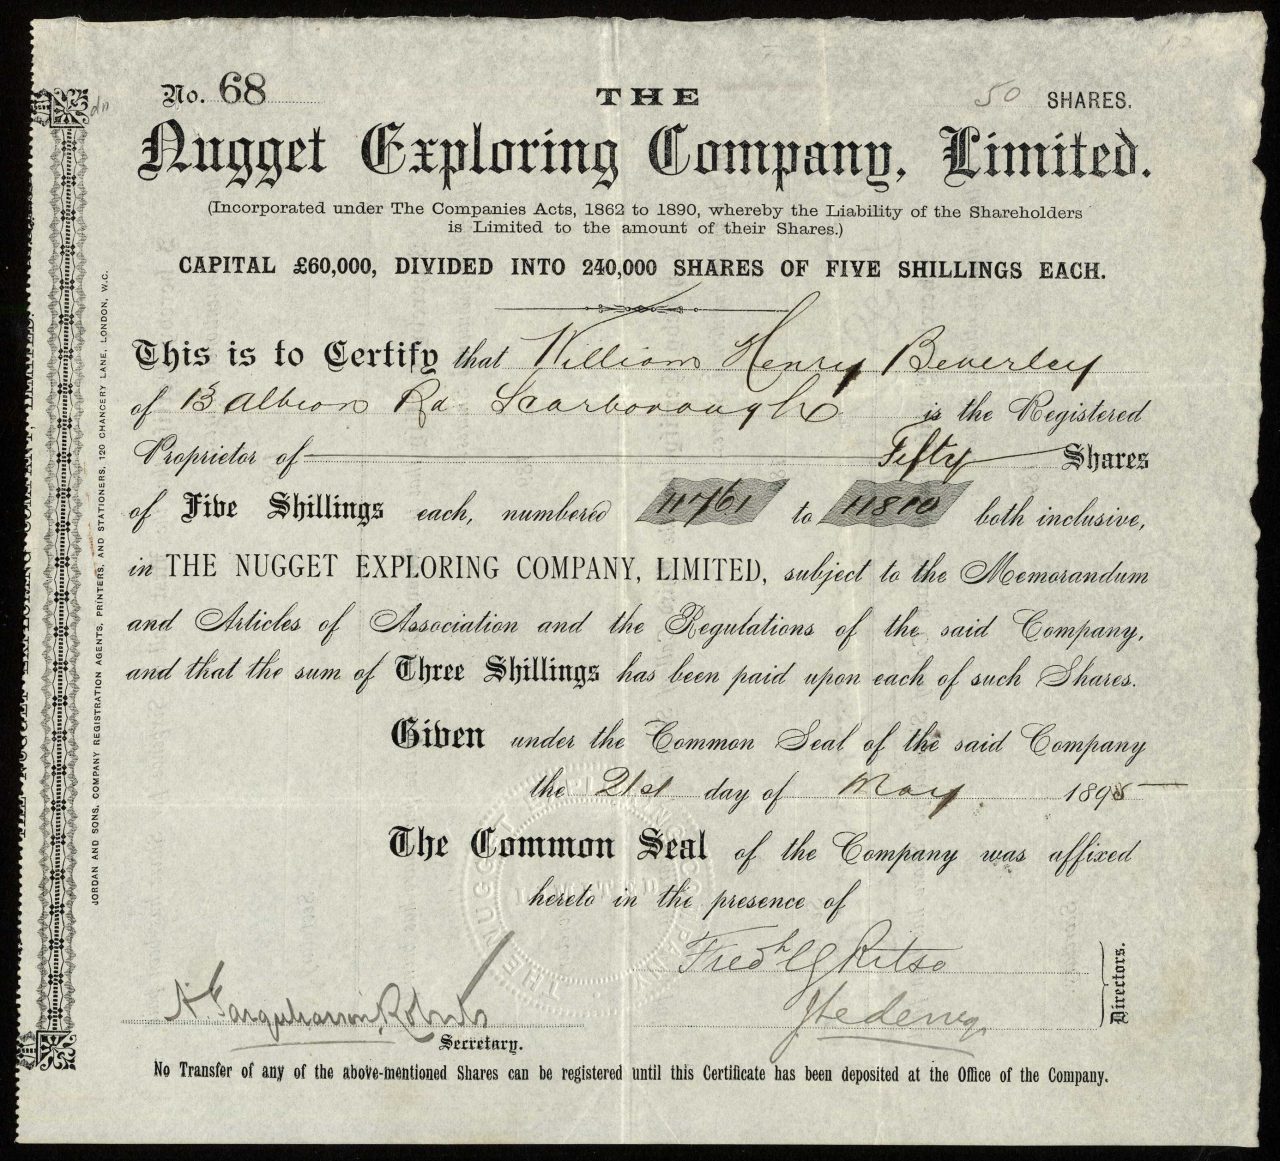 No. 68
THE
50 SHARES.
Nugget Exploring Company, Limited.
(Incorporated under The Companies Acts, 1862 to 1890, whereby the Liability of the Shareholders
is Limited to the amount of their Shares.)
CAPITAL £60,000, DIVIDED INTO 240,000 SHARES OF FIVE SHILLINGS EACH.
This is to Certify that William Henry Beverley
of Albion Rd Scarborough is the Registered
Proprietor of Fifty Shares
of Five Shillings each, numbered 11761 to 11810 both inclusive,
in THE NUGGET EXPLORING COMPANY, LIMITED, subject to the Memorandum
and Articles of Association and the Regulations of the said Company,
and that the sum of Three Shillings has been paid upon each of such Shares.
Given under the Common Seal of the said Company
the 21st day of May 1895
The Common Seal of the Company was affixed
hereto in the presence of
Fredk Ritso
Directors.
A Farquharson Roberts
Secretary.
No Transfer of any of the above-mentioned Shares can be registered until this Certificate has been deposited at the Office of the Company.
JORDAN AND SONS, COMPANY REGISTRATION AGENTS, PRINTERS, AND STATIONERS, 120 CHANCERY LANE, LONDON, W.C.
THE NUGGET EXPLORING COMPANY LIMITED